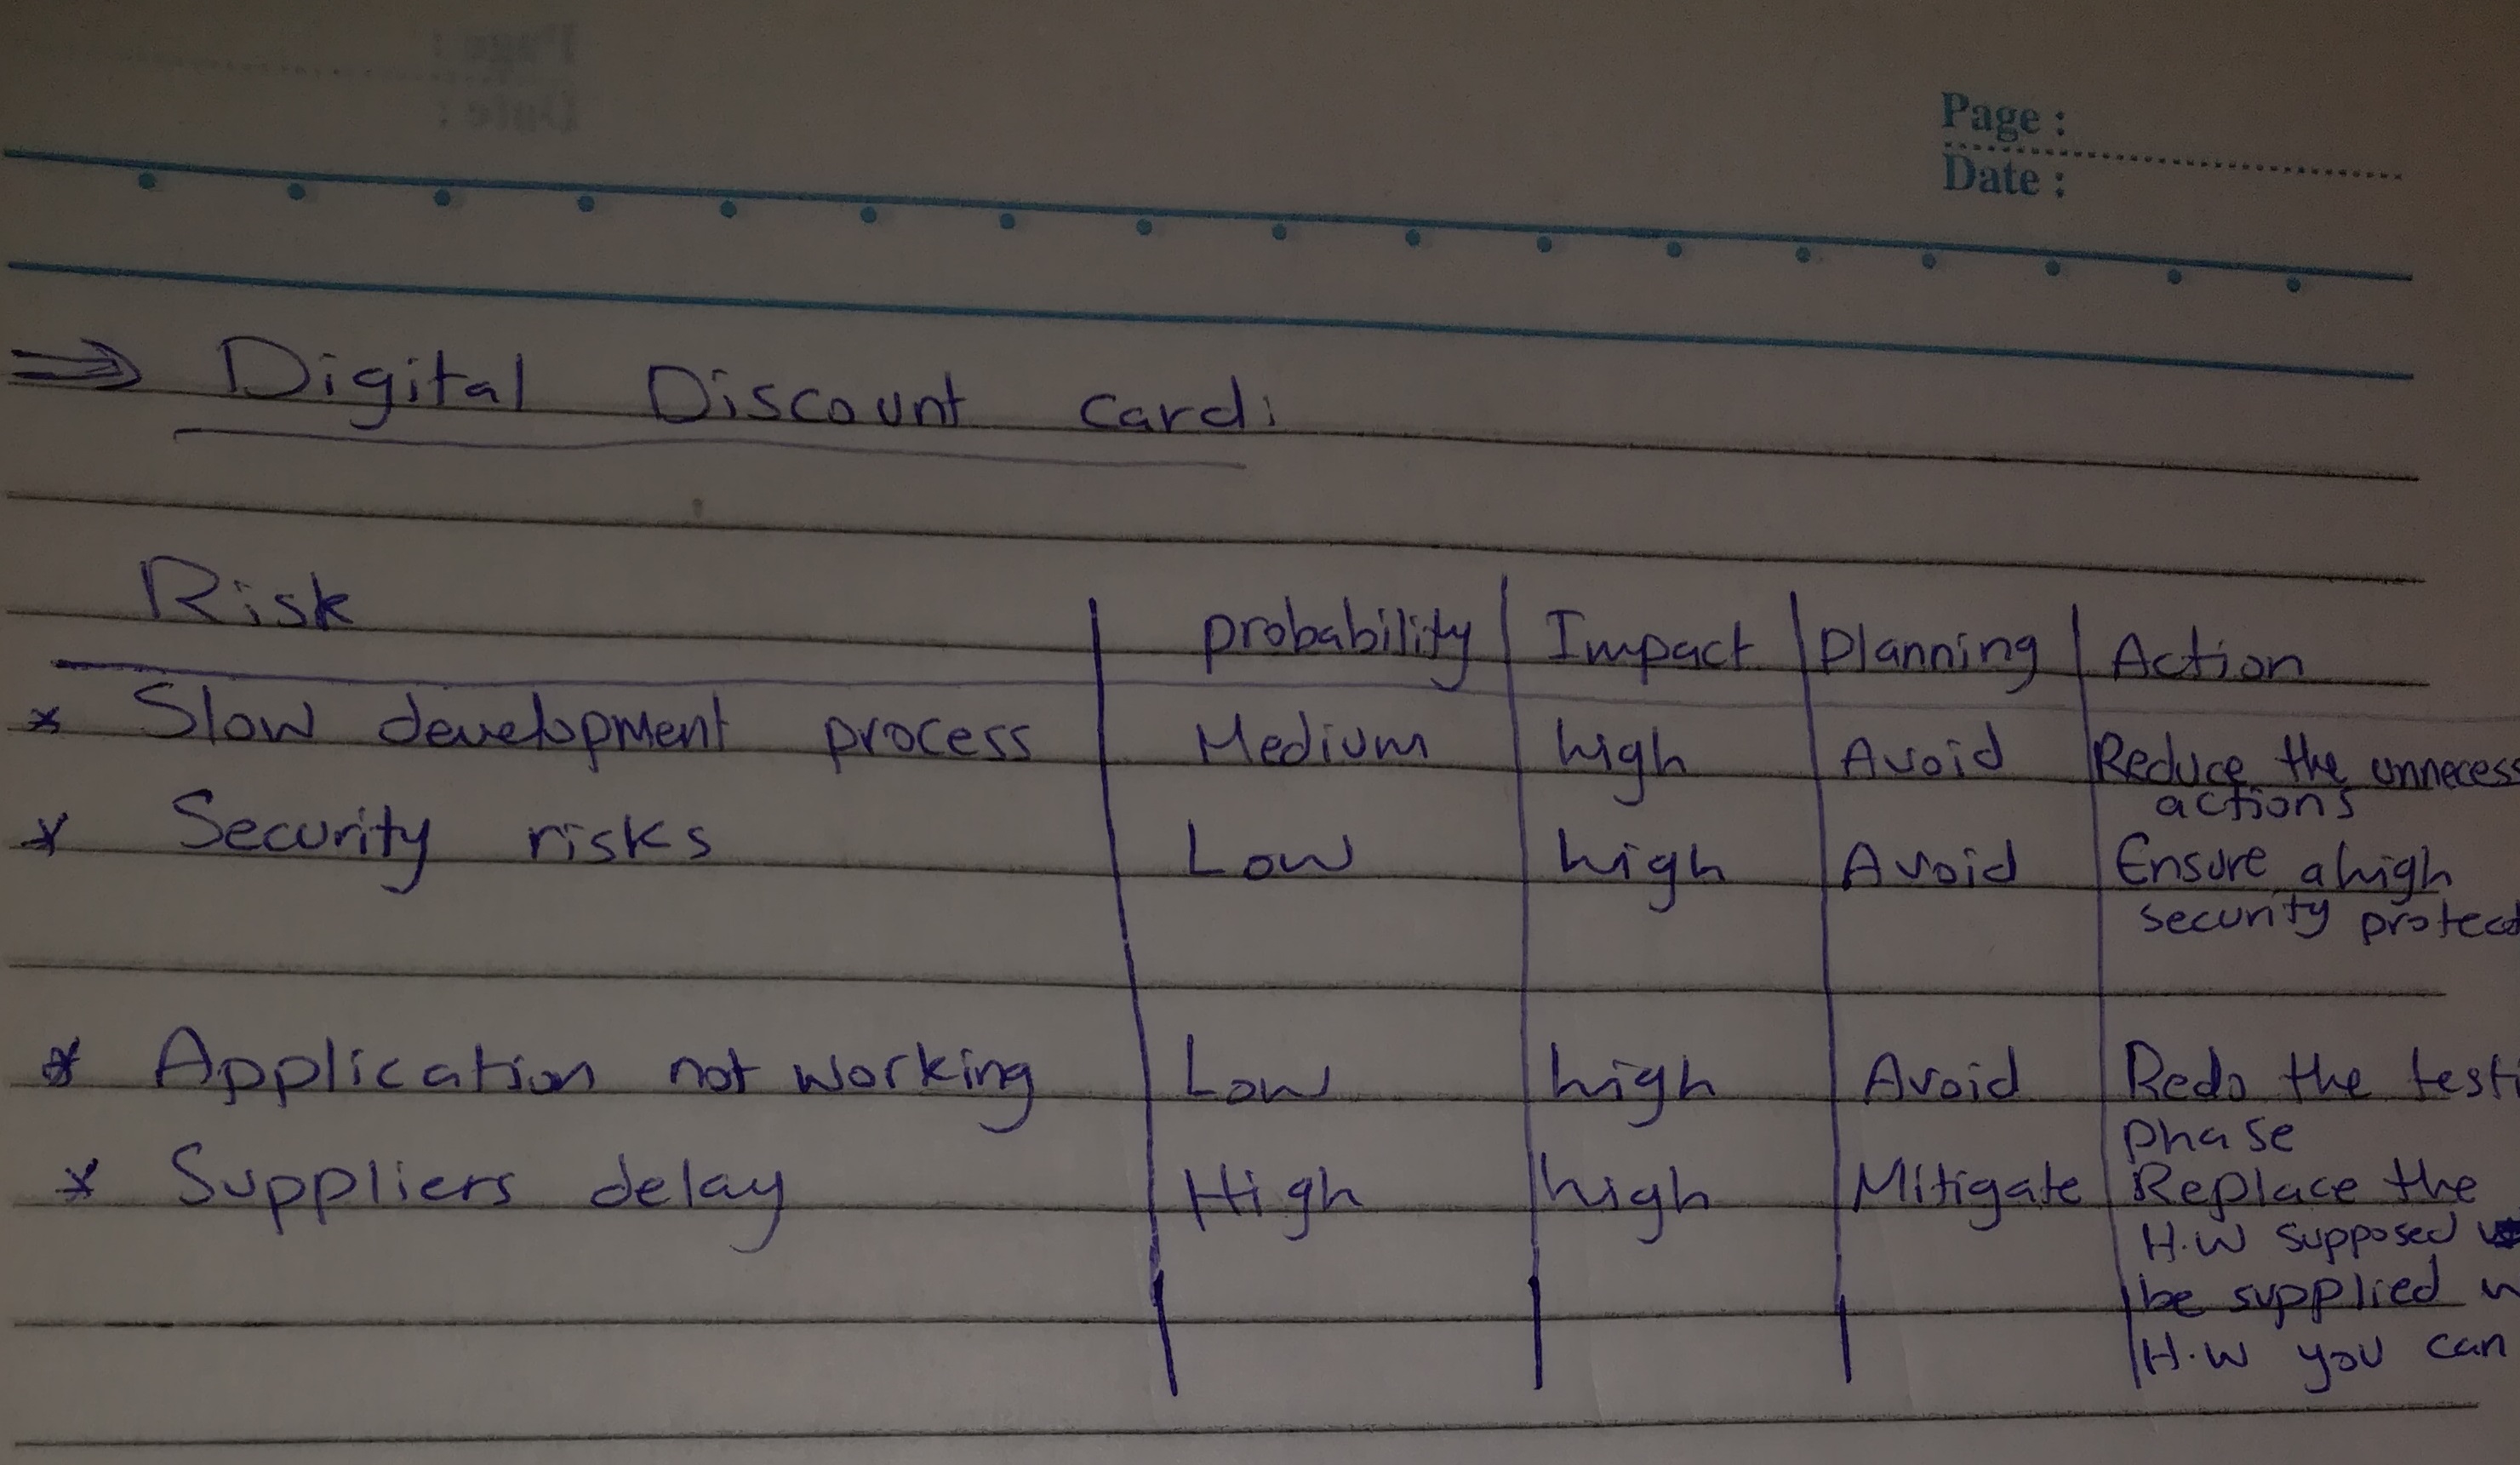 Page :
Date :
⇒ Digital Discount card:
Risk | probability | Impact | Planning | Action
* Slow development process | Medium | high | Avoid | Reduce the unnecess
actions
* Security risks | Low | high | Avoid | Ensure a high
security protec
* Application not working | Low | high | Avoid | Redo the testi
phase
* Suppliers delay | High | high | Mitigate | Replace the
H.W supposed
be supplied
H.W you can